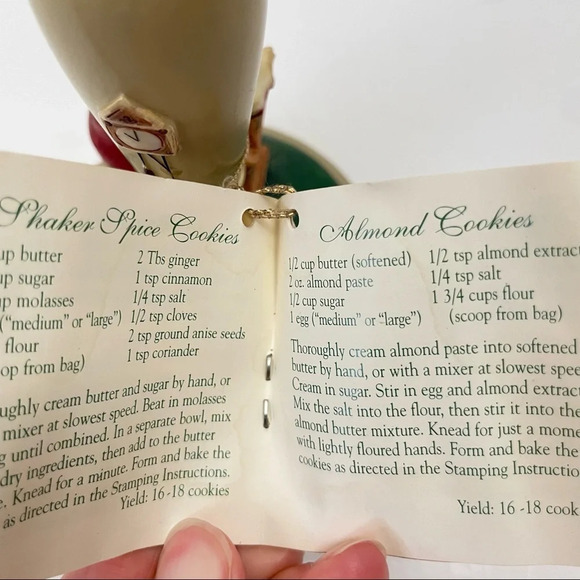 Shaker Spice Cookies
butter
sugar
molasses
("medium" or "large")
flour
from bag)
2 Tbs ginger
1 tsp cinnamon
1/4 tsp salt
1/2 tsp cloves
2 tsp ground anise seeds
1 tsp coriander
cream butter and sugar by hand, or
mixer at slowest speed. Beat in molasses
until combined. In a separate bowl, mix
dry ingredients, then add to the butter
Knead for a minute. Form and bake the
as directed in the Stamping Instructions.
Yield: 16-18 cookies
Almond Cookies
1/2 cup butter (softened)
2 oz. almond paste
1/2 cup sugar
1 egg ("medium" or "large")
1/2 tsp almond extract
1/4 tsp salt
1 3/4 cups flour
(scoop from bag)
Thoroughly cream almond paste into softened
butter by hand, or with a mixer at slowest
Cream in sugar. Stir in egg and almond
Mix the salt into the flour, then stir it into the
almond butter mixture. Knead for just a
with lightly floured hands. Form and bake the
cookies as directed in the Stamping
Yield: 16 -18